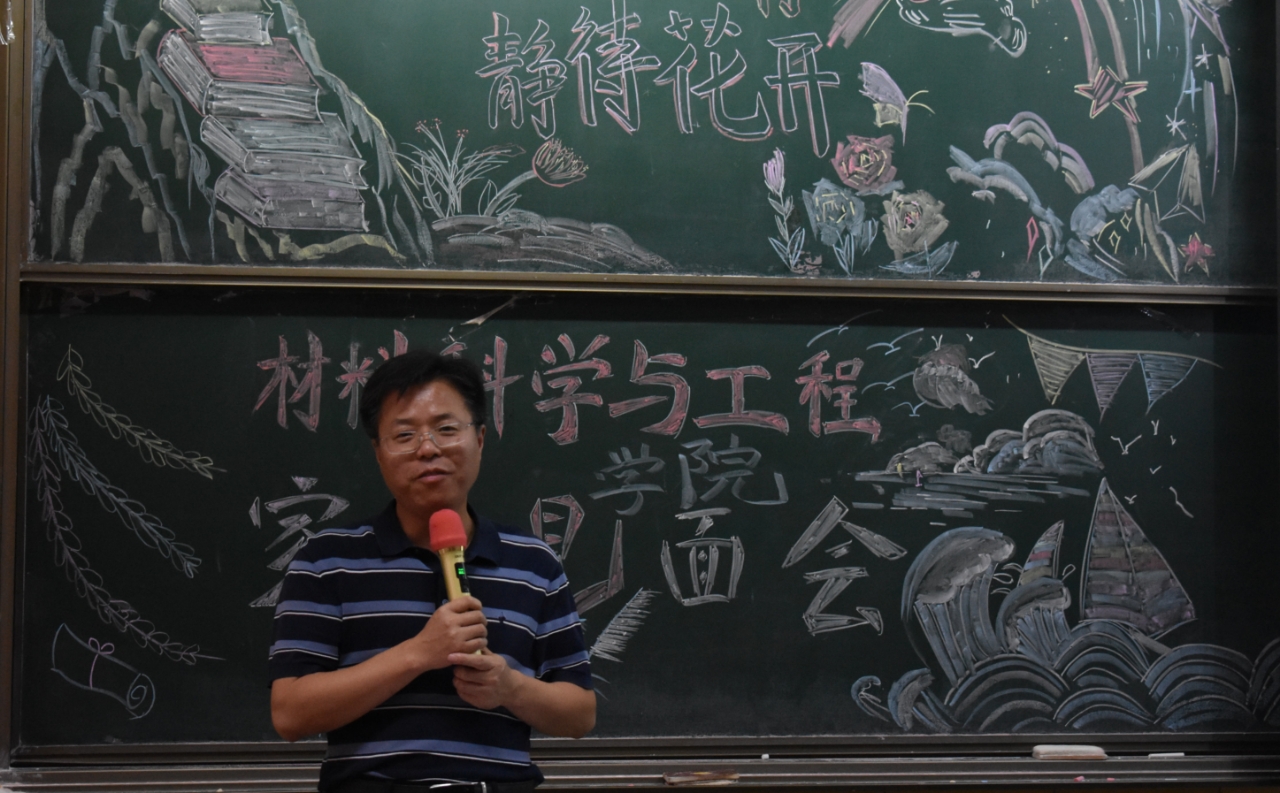 静待花开
材料科学与工程
学院
家 见面会